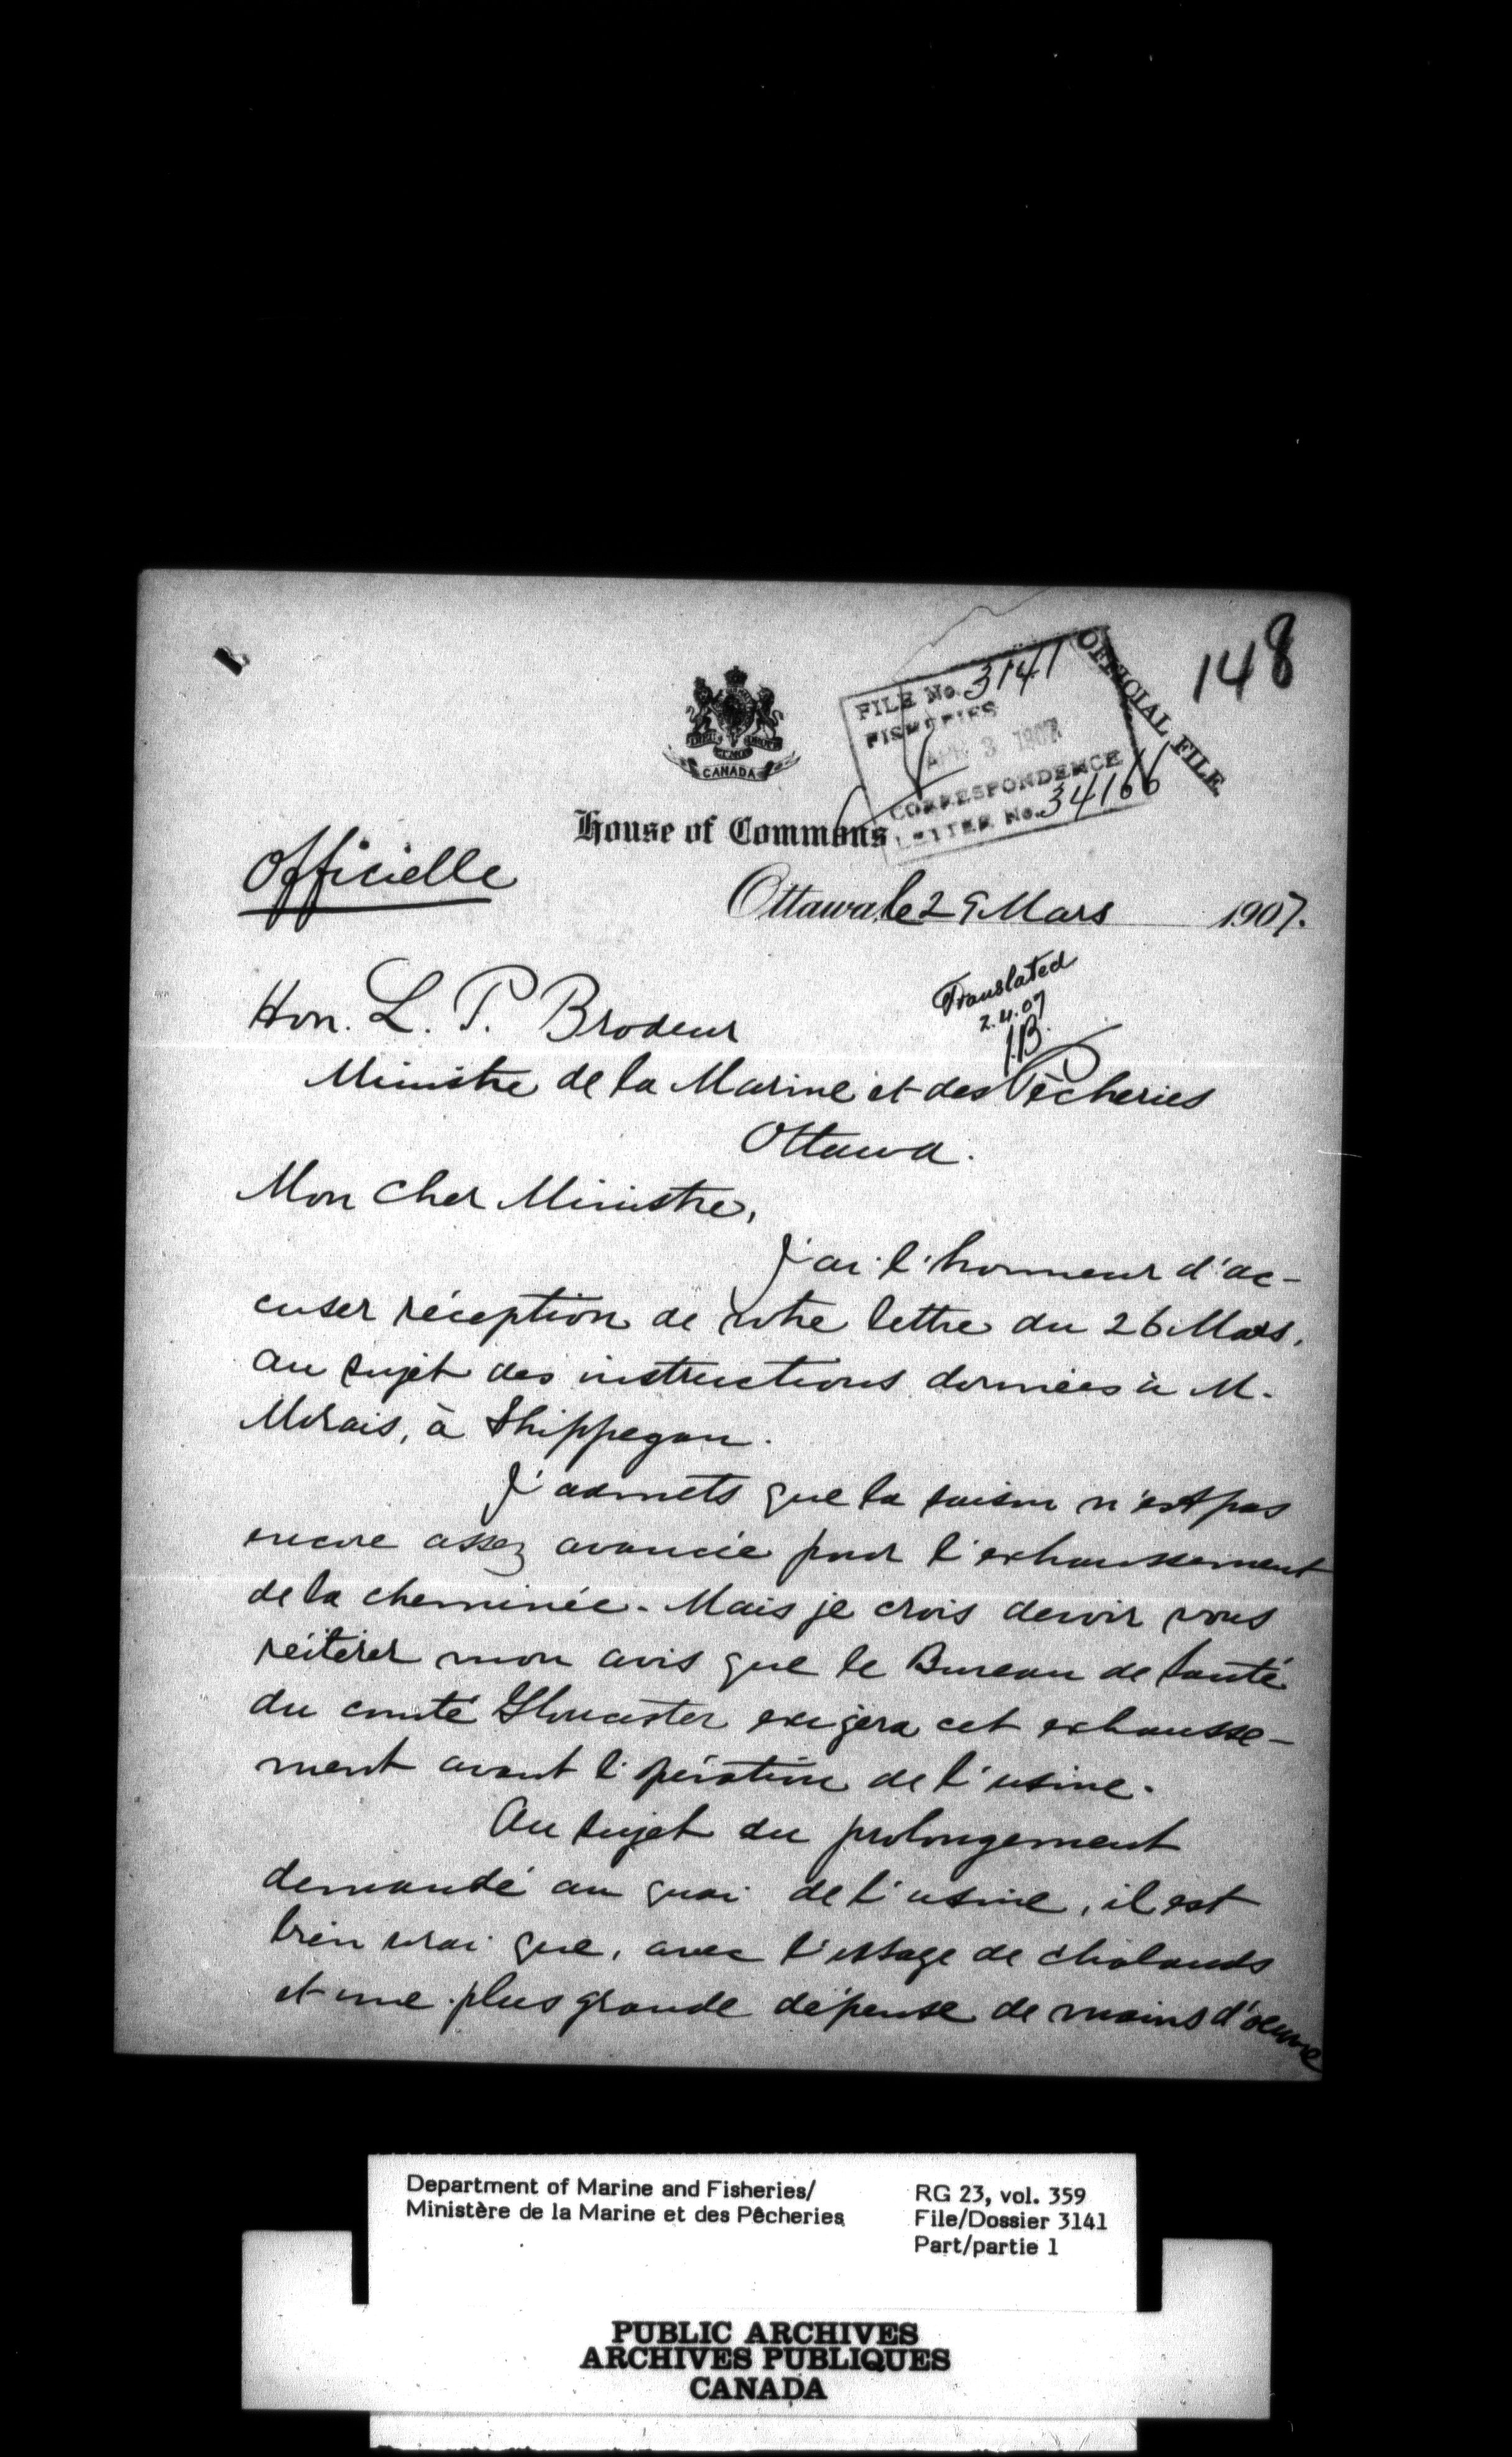 148
OFFICIAL FILE
FILE No. 3141
FISHERIES
APR 3 1907
CORRESPONDENCE
LETTER No. 34166
CANADA
House of Commons
Officielle
Ottawa, le 29 Mars 1907.
Translated
2.4.07
Hon. L. P. Brodeur
Ministre de la Marine et des Pêcheries
Ottawa.
Mon cher Ministre,
J'ai l'honneur d'ac-
cuser réception de votre lettre du 26 Mars,
au sujet des instructions données à M.
Morais, à Shippegan.
J'admets que la saison n'est pas
encore assez avancée pour l'exhaussement
de la cheminée. Mais je crois devoir vous
réitérer mon avis que le Bureau de Santé
du comté Gloucester exigera cet exhausse-
ment avant l'opération de l'usine.
Au sujet du prolongement
demandé au quai de l'usine, il est
bien vrai que, avec l'usage de chalands
et une plus grande dépense de mains d'œuvre
Department of Marine and Fisheries/
Ministère de la Marine et des Pêcheries
RG 23, vol. 359
File/Dossier 3141
Part/partie 1
PUBLIC ARCHIVES
ARCHIVES PUBLIQUES
CANADA